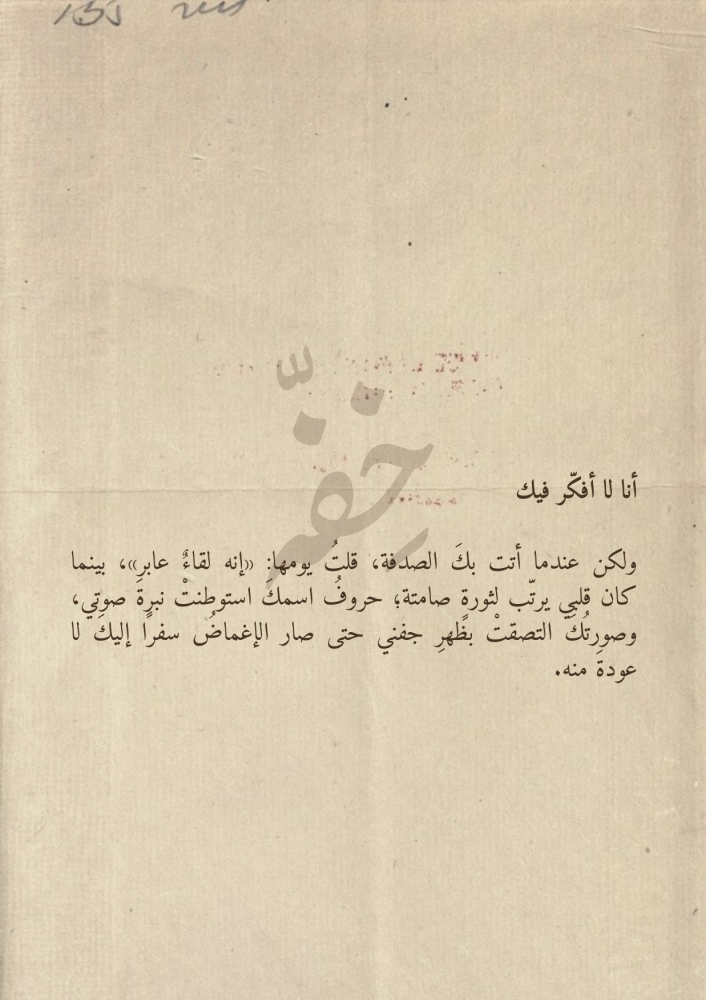 أنا لا أفكّر فيك
ولكن عندما أتت بكَ الصدفة، قلتُ يومها: «إنه لقاءٌ عابر»، بينما
كان قلبي يرتّب لثورةٍ صامتة؛ حروفُ اسمكَ استوطنتْ نبرةَ صوتي،
وصورتُكَ التصقتْ بظهرِ جفني حتى صار الإغماضُ سفرًا إليكَ لا
عودةَ منه.